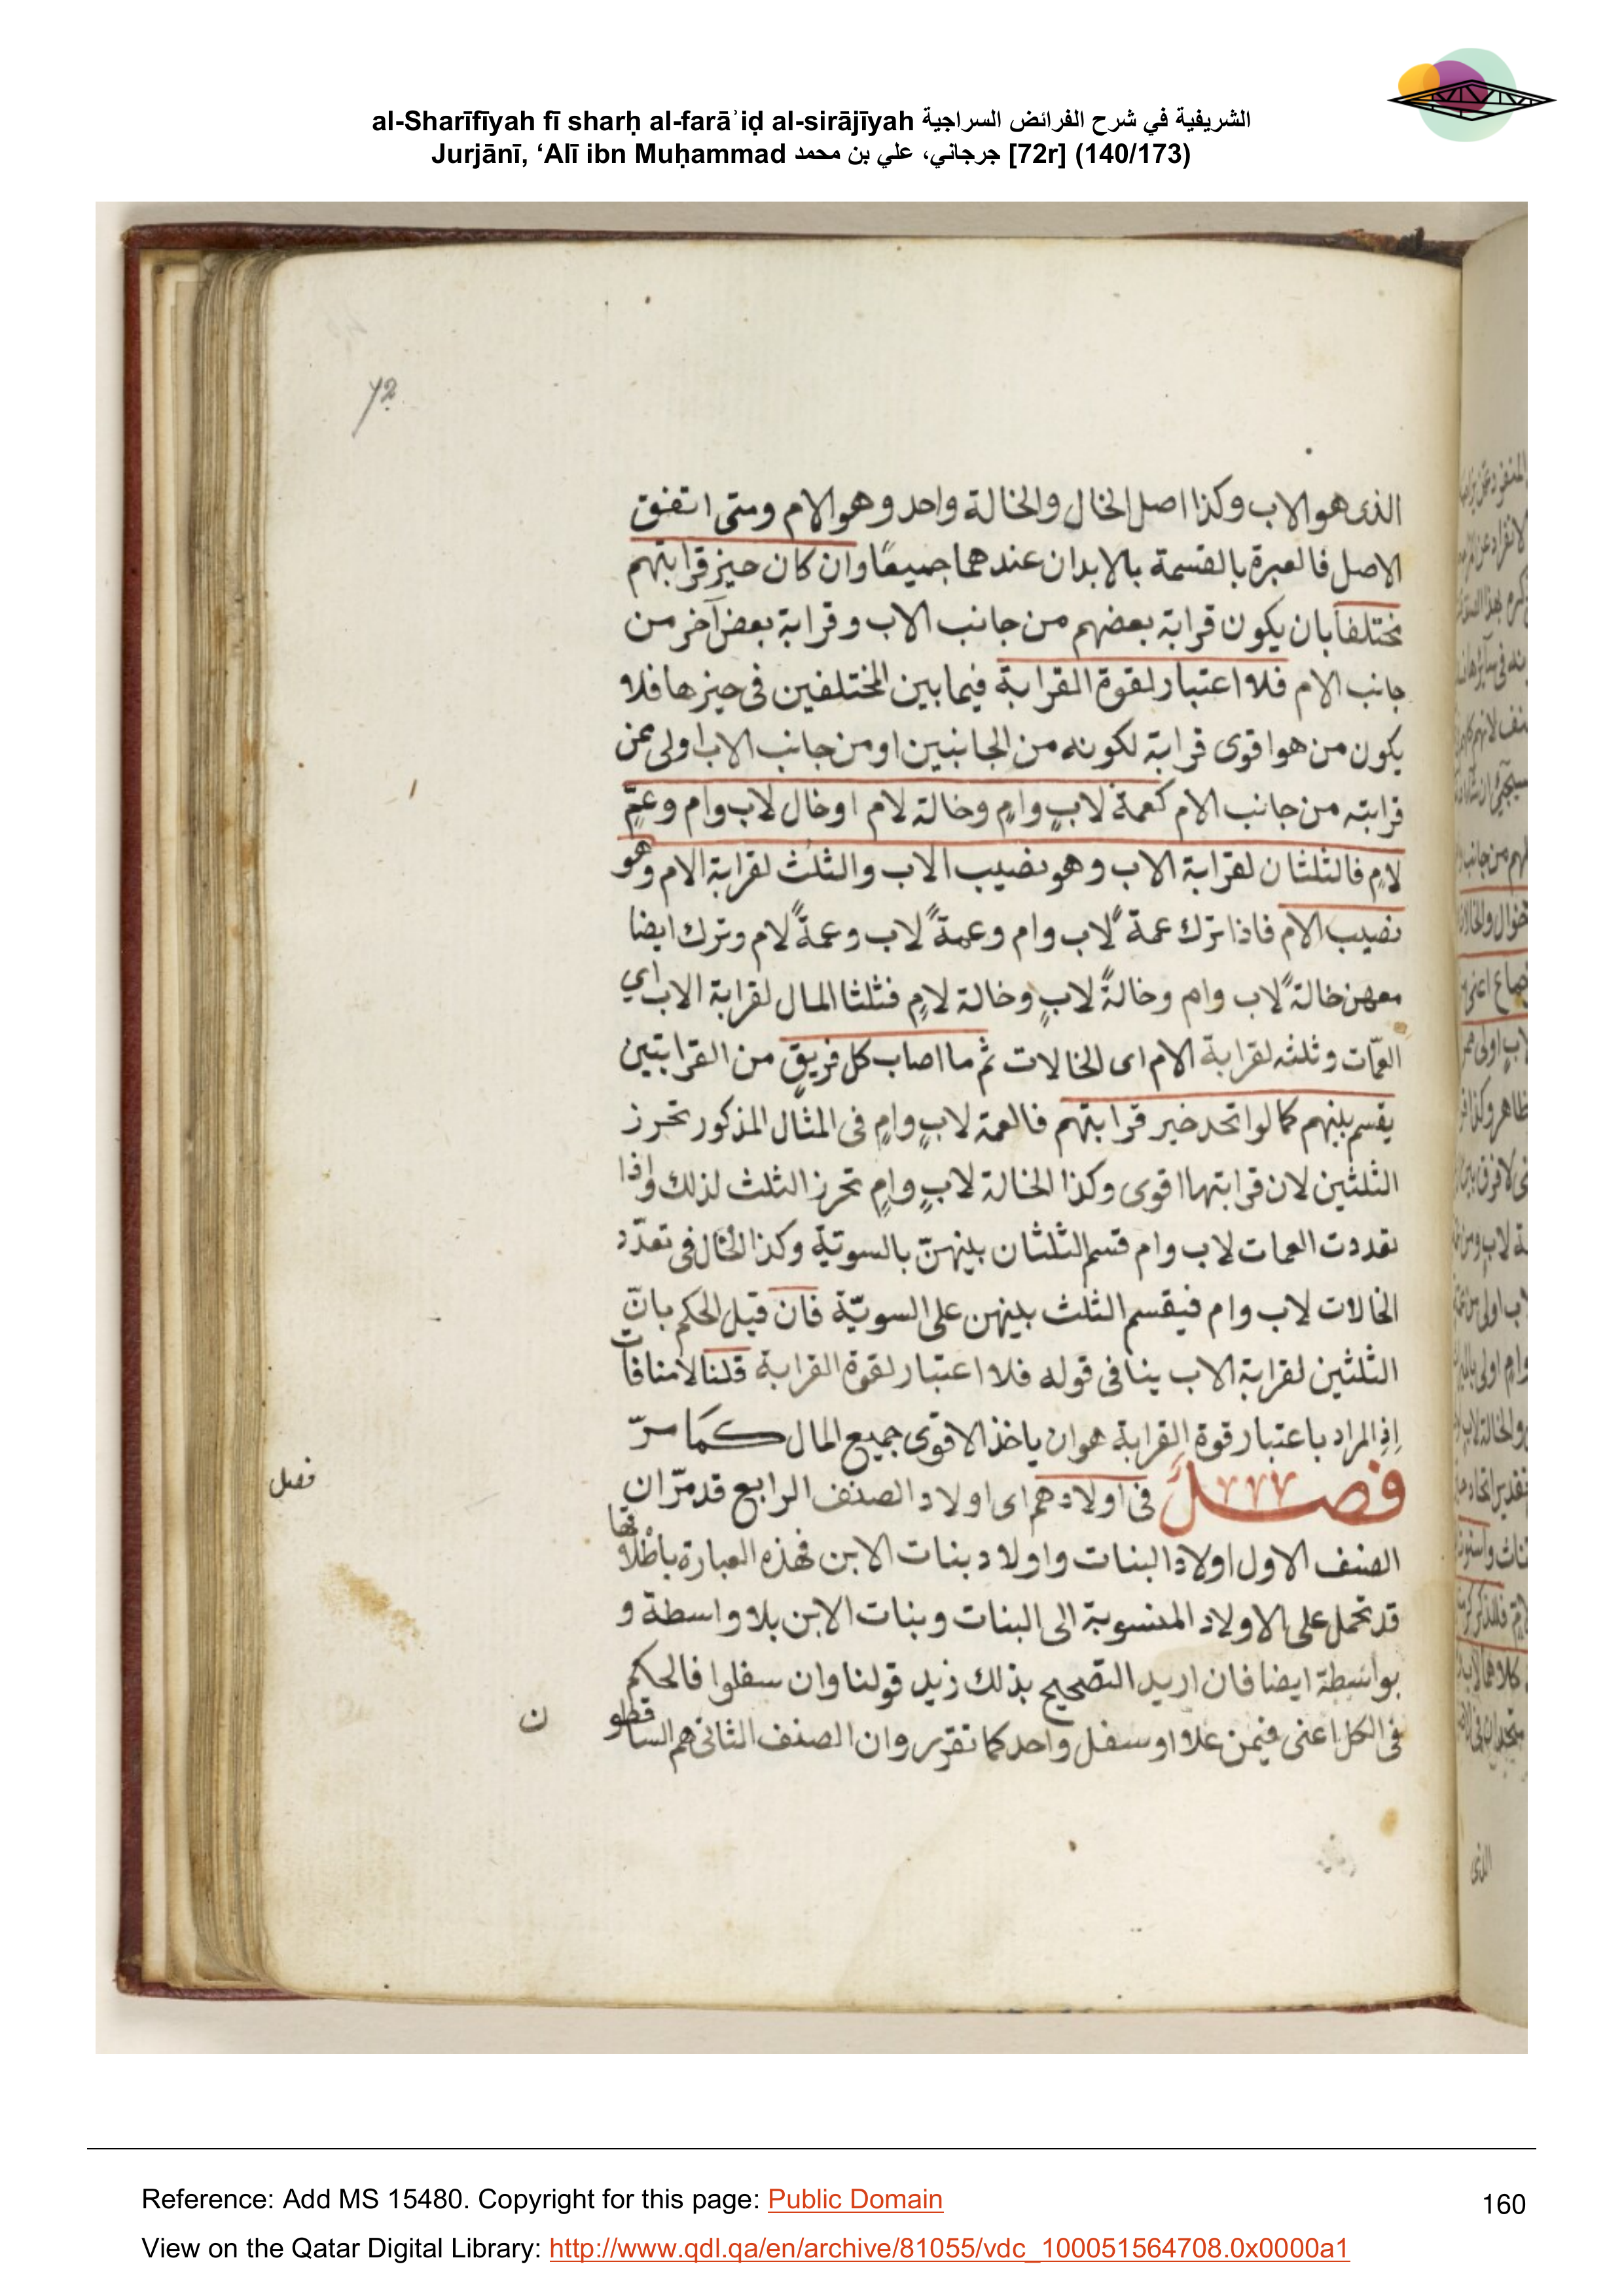 al-Sharīfīyah fī sharḥ al-farāʾiḍ al-sirājīyah الشريفية في شرح الفرائض السراجية
Jurjānī, ‘Alī ibn Muḥammad جرجاني، علي بن محمد [72r] (140/173)
72
الذى هو الاب وكذا اصل الخال والخالة واحد وهو الام ومتى اتفق
الاصل فالعبرة بالقسمة بالابدان عندهما جميعًا وان كان حيز قرابتهم
مختلفا بان يكون قرابة بعضهم من جانب الاب وقرابة بعض آخر من
جانب الام فلا اعتبار لقوة القرابة فيما بين المختلفين فى حيزها فلا
يكون من هو اقوى قرابة لكونه من الجانبين او من جانب الاب اولى ممن
قرابته من جانب الام كعمة لابٍ وامٍ وخالة لام او خال لاب وام وعمٍّ
لامٍ فالثلثان لقرابة الاب وهو نصيب الاب والثلث لقرابة الام وهو
نصيب الام فاذا ترك عمة ً لاب وام وعمةً لاب وعمةً لام وترك ايضا
معهن خالةً لاب وام وخالةً لابٍ وخالة لامٍ فثلثا المال لقرابة الاب اي
العمّات وثلثه لقرابة الام اى الخالات ثم ما اصاب كل فريقٍ من القرابتين
يقسم بينهم كما لو اتحد خير قرابتهم فالعمة لابٍ وامٍ فى المثال المذكور تحرز
الثلثين لان قرابتها اقوى وكذا الخالة لابٍ وامٍ تحرز الثلث لذلك واذا
تعددت العمات لاب وام قسم الثلثان بينهنّ بالسويّة وكذا الحال فى تعدّد
الخالات لاب وام فيقسم الثلث بينهن على السويّة فان قيل الحكم بانّ
الثلثين لقرابة الاب ينافى قوله فلا اعتبار لقوة القرابة قلنا لا منافات
اِذِ المراد باعتبار قوة القرابة هو ان ياخذ الاقوى جميع المال كما مرّ
فصل فى اولادهم اى اولاد الصنف الرابع قد مرّ ان
فصل
الصنف الاول اولاد البنات واولاد بنات الابن فهذه العبارة باطلاقها
قد تحمل على الاولاد المنسوبة الى البنات وبنات الابن بلا واسطة و
بواسطة ايضا فان اريد التصحيح بذلك زيد قولنا وان سفلوا فالحكم
فى الكل اعنى فيمن علا او سفل واحد كما تقرر وان الصنف الثانى هم الساقطو
ن
Reference: Add MS 15480. Copyright for this page: Public Domain
160
View on the Qatar Digital Library: http://www.qdl.qa/en/archive/81055/vdc_100051564708.0x0000a1